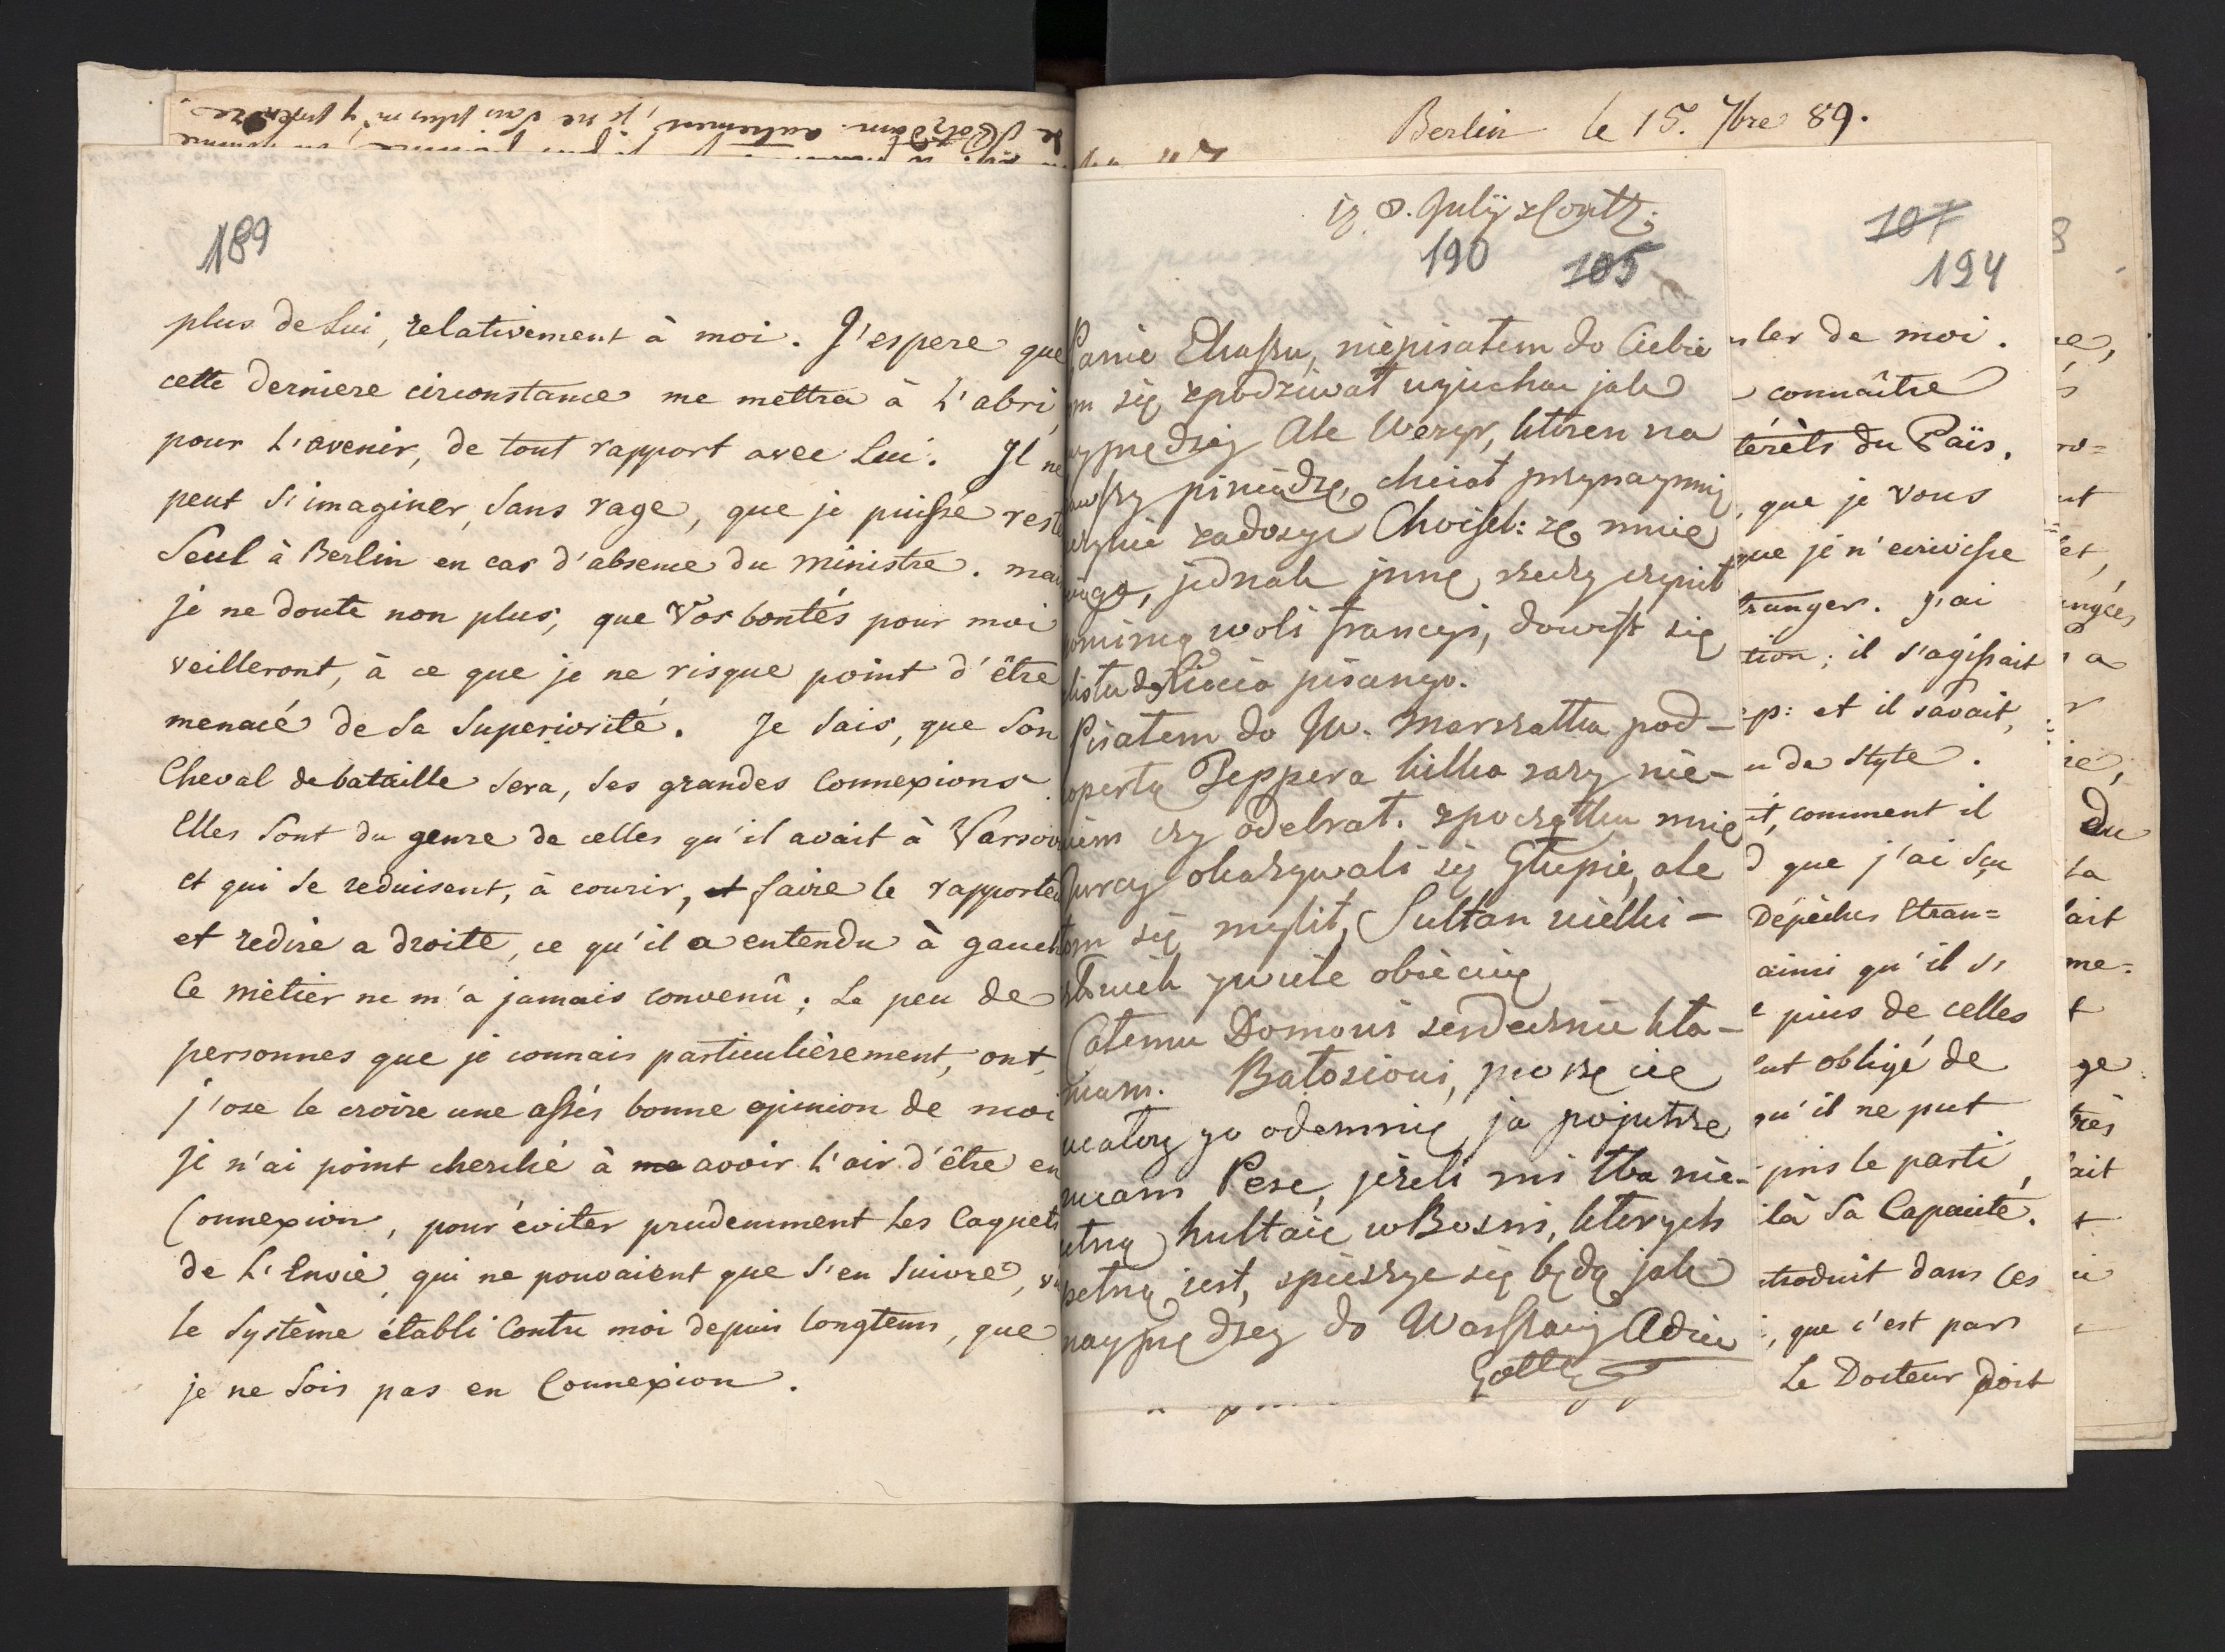 189
plus de Lui, relativement à moi. J'espere que
cette derniere circonstance me mettra à l'abri,
pour l'avenir, de tout rapport avec Lui. Il ne
peut s'imaginer, sans rage, que je puisse reste
seul à Berlin en cas d'absence du ministre. mai
je ne doute non plus, que Vos bontés pour moi
veilleront, à ce que je ne risque point d'être
menacé de sa superiorité. Je sais, que son
Cheval de bataille sera, ses grandes Connexions.
Elles sont du genre de celles qu'il avait à Varsov
et qui se reduisent, à courir, et faire le rapporteu
et redire a droite, ce qu'il a entendu à gauch
Ce mètier ne m'a jamais convenû; Le peu de
personnes que je connais particulièrement, ont,
j'ose le croire une assés bonne opinion de moi
je n'ai point cherché à me avoir l'air d'être en
Connexion, pour éviter prudemment les Caquets
de L'Envie, qui ne pouvaient que s'en suivre, vu
le système établi Contre moi depuis longtems, que
je ne sois pas en Connexion.
Berlin le 15. 7bre 89.
8. July
190 105
Panie niepisałem do Ciebie
się spodziwał jak
Ale Wezyr, któren na
chciał przynaymniy
Choisel: że mnie
jednak inną rzecz
woli francyi, dowisł się
listu pisango.
Pisałem do Jw. Marszałka pod-
kopertą Teppera kilka razy nie-
wiem czy odebrał. zpoczątku mnie
Turcy okazywali się Głupie, ale
się mylił, Sultan
obiecuię
Całemu Domowi serdecznie kła-
niam. proszę cie
go odemnię, ja pojutrze
jeżeli mi łba nie-
utną hultaie w Bosni, których
pełno iest, spieszyć się będę jak
nayprędzey do Warszawy Adieu
107
194
ler de moi.
connaître
térêts du Païs.
, que je vous
que je n'ecrivisse
tranger. j'ai
tion; il s'agissait
p: et il savait,
u de style.
it, comment il
que j'ai sçu
Dépêches Etran=
ainsi qu'il s'
pius de celles
ut obligé de
qu'il ne put
pris le parti,
là sa Capacité.
troduit dans ces
, que c'est par
Le Docteur doit
8
ro=
ut
et,
a
du
La
ait
me=
t
ge
très
ait